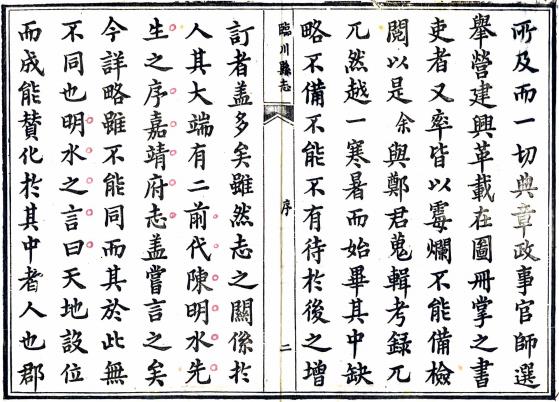 所及而一切典章政事官師選
舉營建興革載在圖冊掌之書
吏者又率皆以霉爛不能備檢
閱以是余與鄭君蒐輯考録兀
兀然越一寒暑而始畢其中缺
略不備不能不有待於後之增
臨川縣志
序
二
訂者盖多矣雖然志之關係於
人其大端有二前代陳明水先
生之序嘉靖府志盖嘗言之矣
今詳略雖不能同而其於此無
不同也明水之言曰天地設位
而成能賛化於其中者人也郡